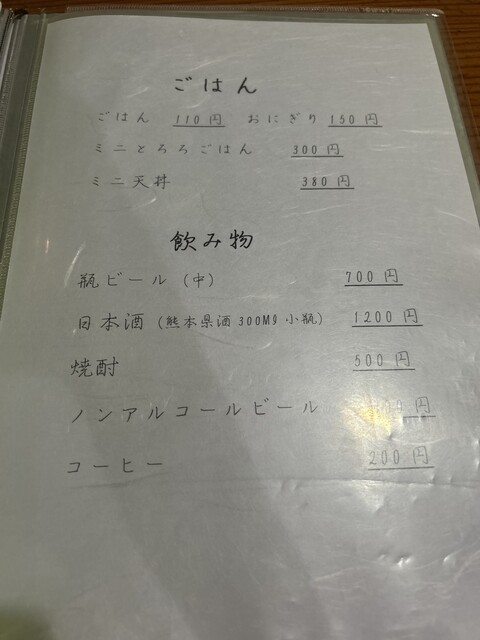 ごはん
ごはん 110円 おにぎり 150円
ミニとろろごはん 300円
ミニ天丼 380円
飲み物
瓶ビール（中） 700円
日本酒（熊本県酒300Ml小瓶） 1200円
焼酎 500円
ノンアルコールビール 円
コーヒー 200円